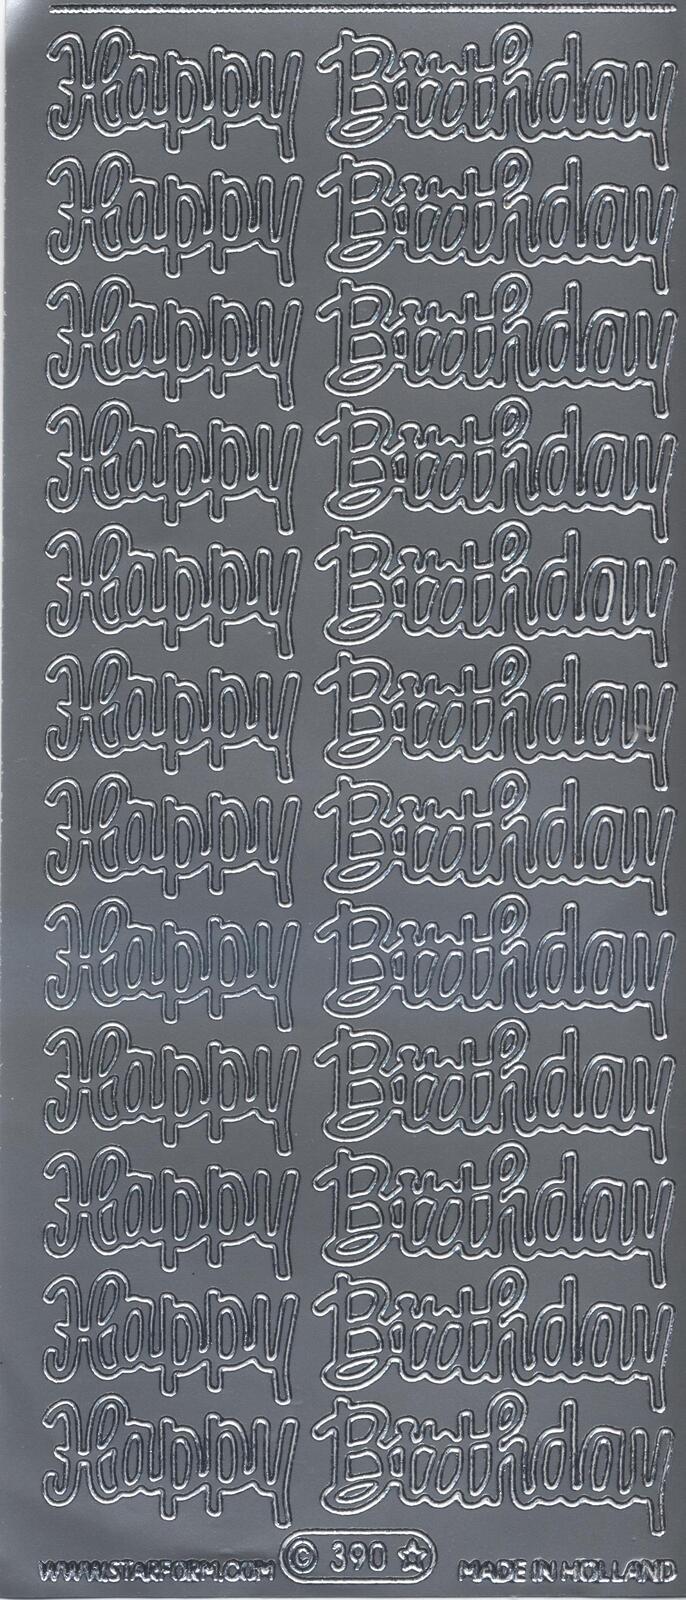 Happy Birthday
Happy Birthday
Happy Birthday
Happy Birthday
Happy Birthday
Happy Birthday
Happy Birthday
Happy Birthday
Happy Birthday
Happy Birthday
Happy Birthday
Happy Birthday
WWW.STARFORM.COM © 390 ☆ MADE IN HOLLAND